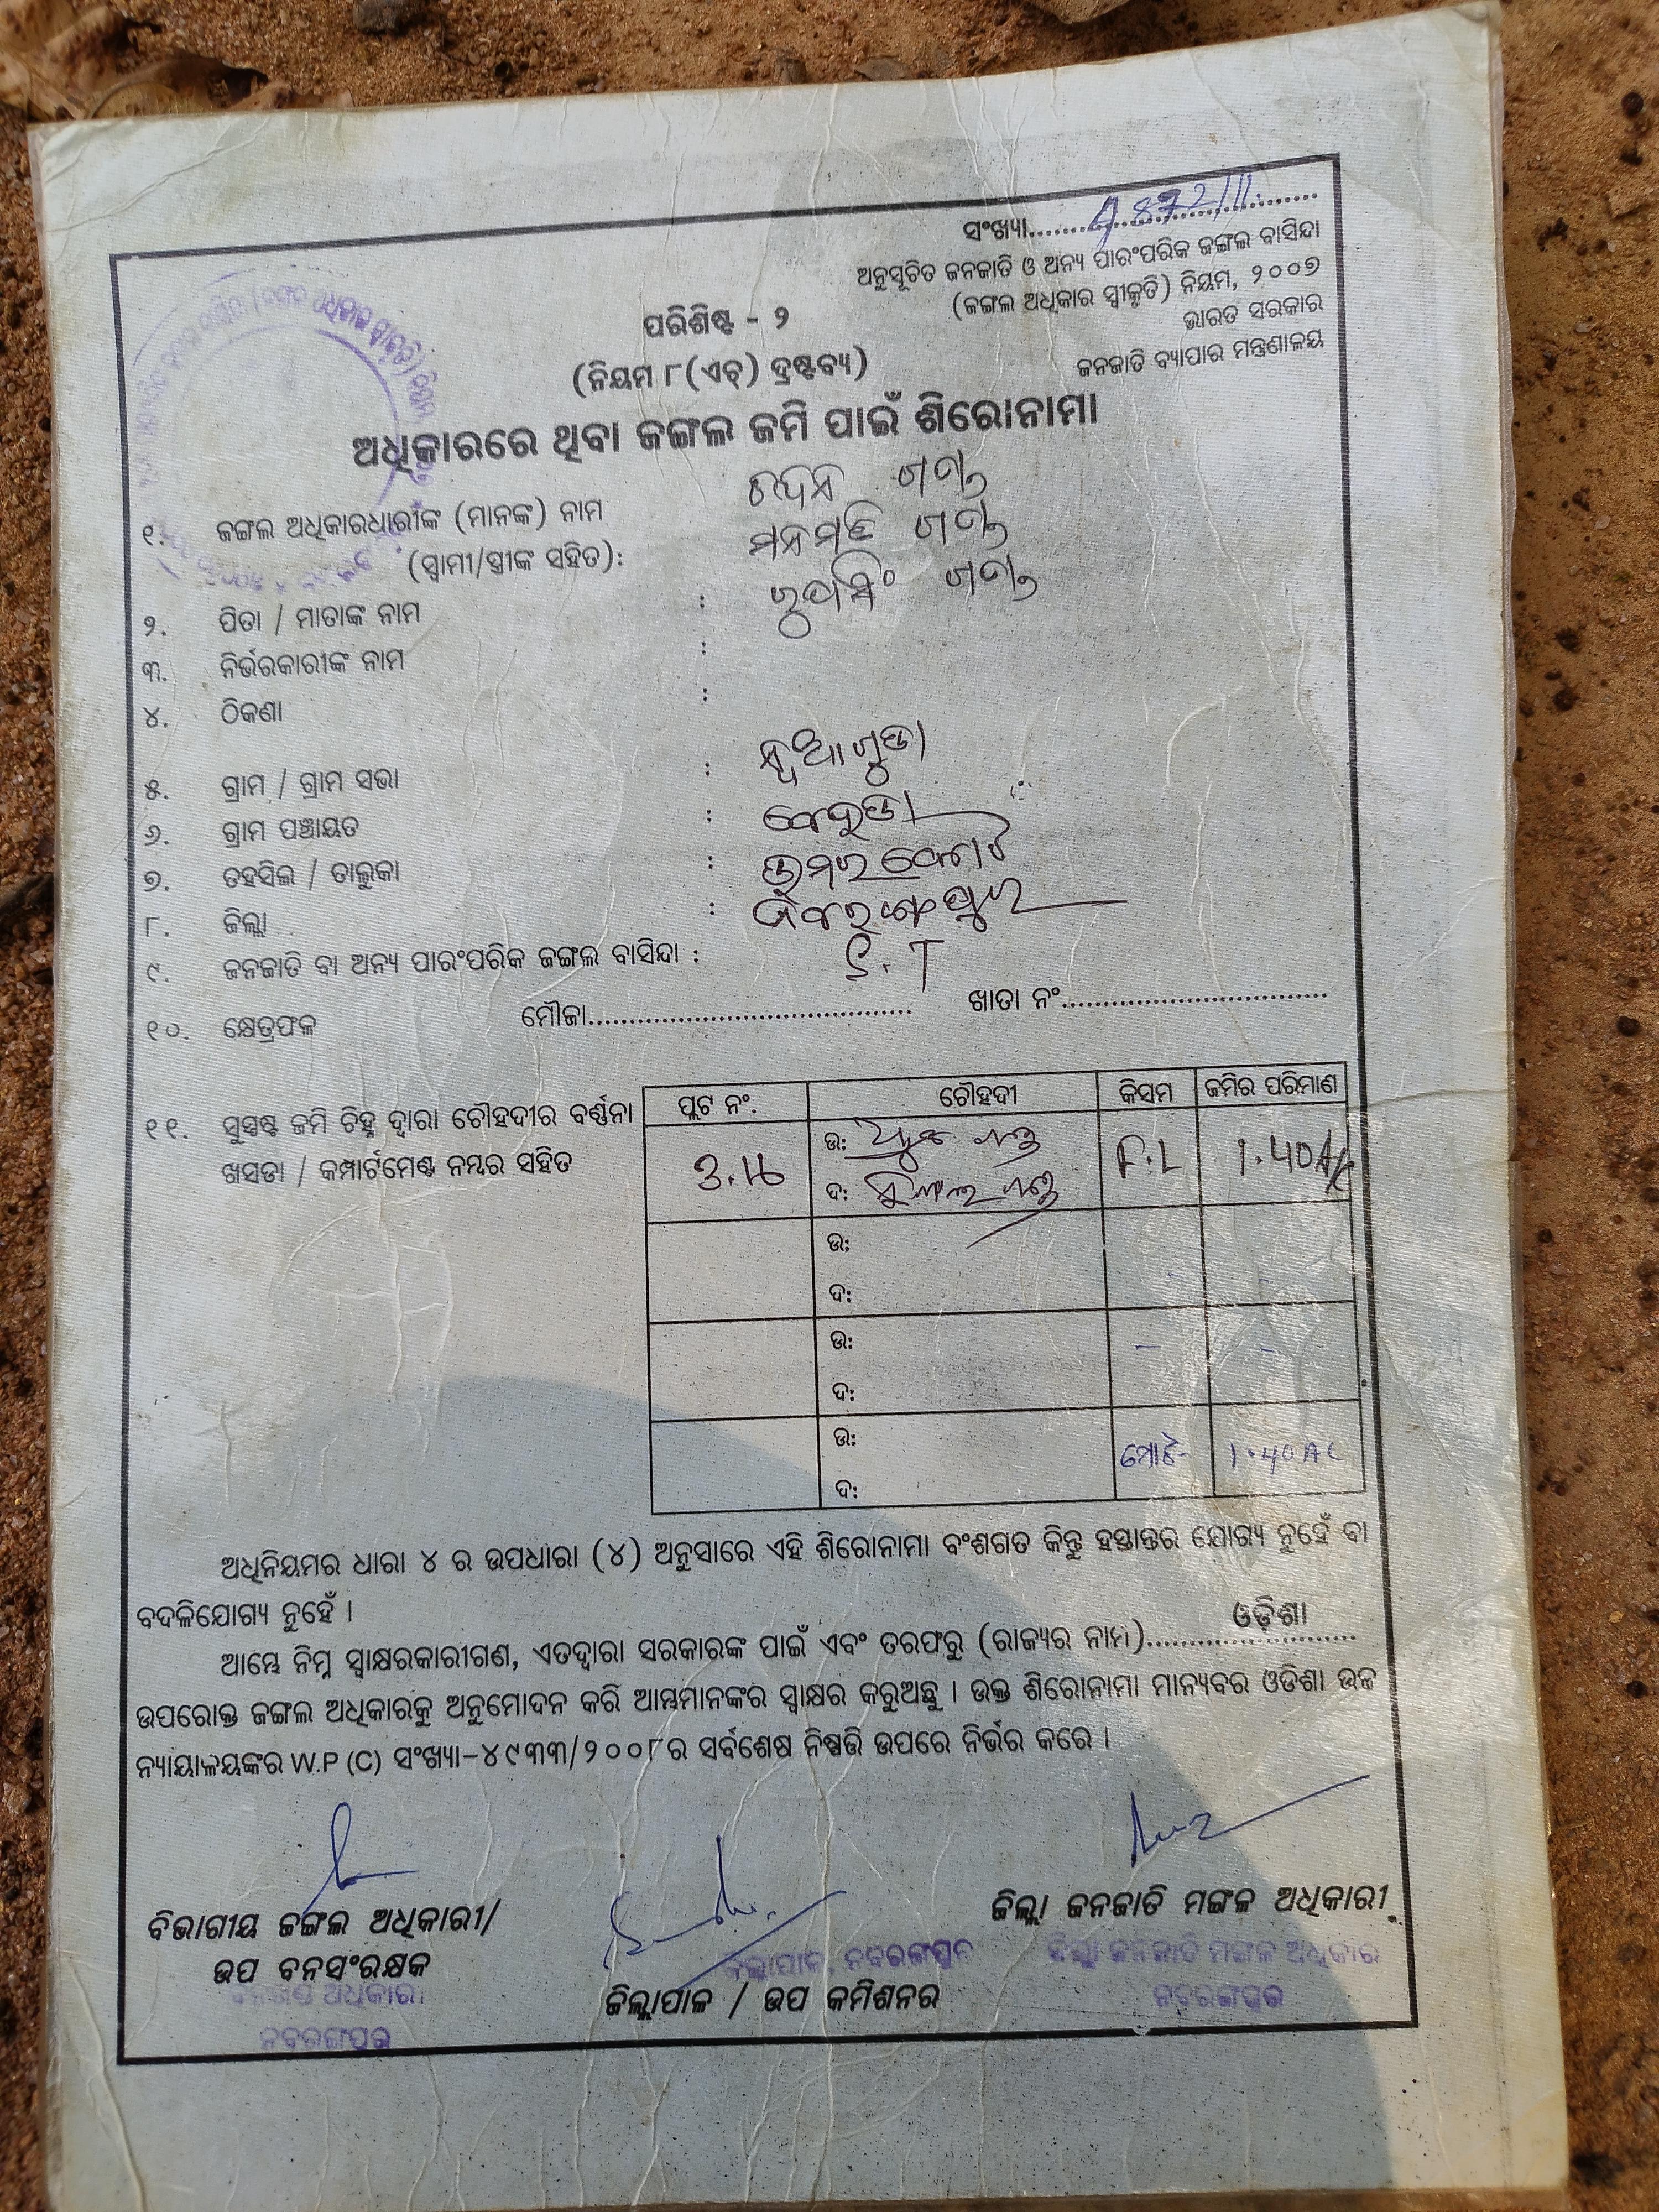 ସଂଖ୍ୟା
ଅନୁସୂଚିତ ଜନଜାତି ଓ ଅନ୍ୟ ପାରଂପରିକ ଜଙ୍ଗଲ ବାସିନ୍ଦା
(ଜଙ୍ଗଲ ଅଧିକାର ସ୍ୱୀକୃତି) ନିୟମ, ୨୦୦୭
ଭାରତ ସରକାର
ଜନଜାତି ବ୍ୟାପାର ମନ୍ତ୍ରଣାଳୟ
ପରିଶିଷ୍ଟ - ୨
(ନିୟମ ୮(ଏଚ୍) ଦ୍ରଷ୍ଟବ୍ୟ)
ଅଧିକାରରେ ଥିବା ଜଙ୍ଗଲ ଜମି ପାଇଁ ଶିରୋନାମା
୧. ଜଙ୍ଗଲ ଅଧିକାରଧାରୀଙ୍କ (ମାନଙ୍କ) ନାମ
(ସ୍ୱାମୀ/ସ୍ତ୍ରୀଙ୍କ ସହିତ):
୨. ପିତା / ମାତାଙ୍କ ନାମ :
୩. ନିର୍ଭରକାରୀଙ୍କ ନାମ :
୪. ଠିକଣା :
୫. ଗ୍ରାମ / ଗ୍ରାମ ସଭା : ନୂଆଗୁଡା
୬. ଗ୍ରାମ ପଞ୍ଚାୟତ :
୭. ତହସିଲ / ତାଲୁକା : ଉମରକୋଟ
୮. ଜିଲ୍ଲା : ନବରଂଗପୁର
୯. ଜନଜାତି ବା ଅନ୍ୟ ପାରଂପରିକ ଜଙ୍ଗଲ ବାସିନ୍ଦା : S.T
୧୦. କ୍ଷେତ୍ରଫଳ ମୌଜା........ ଖାତା ନଂ........
୧୧. ସୁସ୍ପଷ୍ଟ ଜମି ଚିହ୍ନ ଦ୍ୱାରା ଚୌହଦୀର ବର୍ଣ୍ଣନା
ଖସଡା / କମ୍ପାର୍ଟମେଣ୍ଟ ନମ୍ବର ସହିତ
ପ୍ଲଟ ନଂ. ଚୌହଦୀ କିସମ ଜମିର ପରିମାଣ
ଉ: F.L 1.40 A/c
ଦ:
ଉ:
ଦ:
ଉ: –
ଦ:
ଉ: ମୋଟ- 1.40 AC
ଦ:
ଅଧିନିୟମର ଧାରା ୪ ର ଉପଧାରା (୪) ଅନୁସାରେ ଏହି ଶିରୋନାମା ବଂଶଗତ କିନ୍ତୁ ହସ୍ତାନ୍ତର ଯୋଗ୍ୟ ନୁହେଁ ବା
ବଦଳିଯୋଗ୍ୟ ନୁହେଁ ।
ଆମ୍ଭେ ନିମ୍ନ ସ୍ୱାକ୍ଷରକାରୀଗଣ, ଏତଦ୍ୱାରା ସରକାରଙ୍କ ପାଇଁ ଏବଂ ତରଫରୁ (ରାଜ୍ୟର ନାମ) ଓଡ଼ିଶା
ଉପରୋକ୍ତ ଜଙ୍ଗଲ ଅଧିକାରକୁ ଅନୁମୋଦନ କରି ଆମ୍ଭମାନଙ୍କର ସ୍ୱାକ୍ଷର କରୁଅଛୁ । ଉକ୍ତ ଶିରୋନାମା ମାନ୍ୟବର ଓଡିଶା ଉଚ୍ଚ
ନ୍ୟାୟାଳୟଙ୍କର W.P (C) ସଂଖ୍ୟା-୪୯୩୩/୨୦୦୮ର ସର୍ବଶେଷ ନିଷ୍ପତ୍ତି ଉପରେ ନିର୍ଭର କରେ ।
ବିଭାଗୀୟ ଜଙ୍ଗଲ ଅଧିକାରୀ/
ଉପ ବନସଂରକ୍ଷକ
ଅଧିକାରୀ
ନବରଙ୍ଗପୁର
ଜିଲ୍ଲାପାଳ, ନବରଙ୍ଗପୁର
ଜିଲ୍ଲାପାଳ / ଉପ କମିଶନର
ଜିଲ୍ଲା ଜନଜାତି ମଙ୍ଗଳ ଅଧିକାରୀ
ଜିଲ୍ଲା ଜନଜାତି ମଙ୍ଗଳ ଅଧିକାରୀ
ନବରଙ୍ଗପୁର